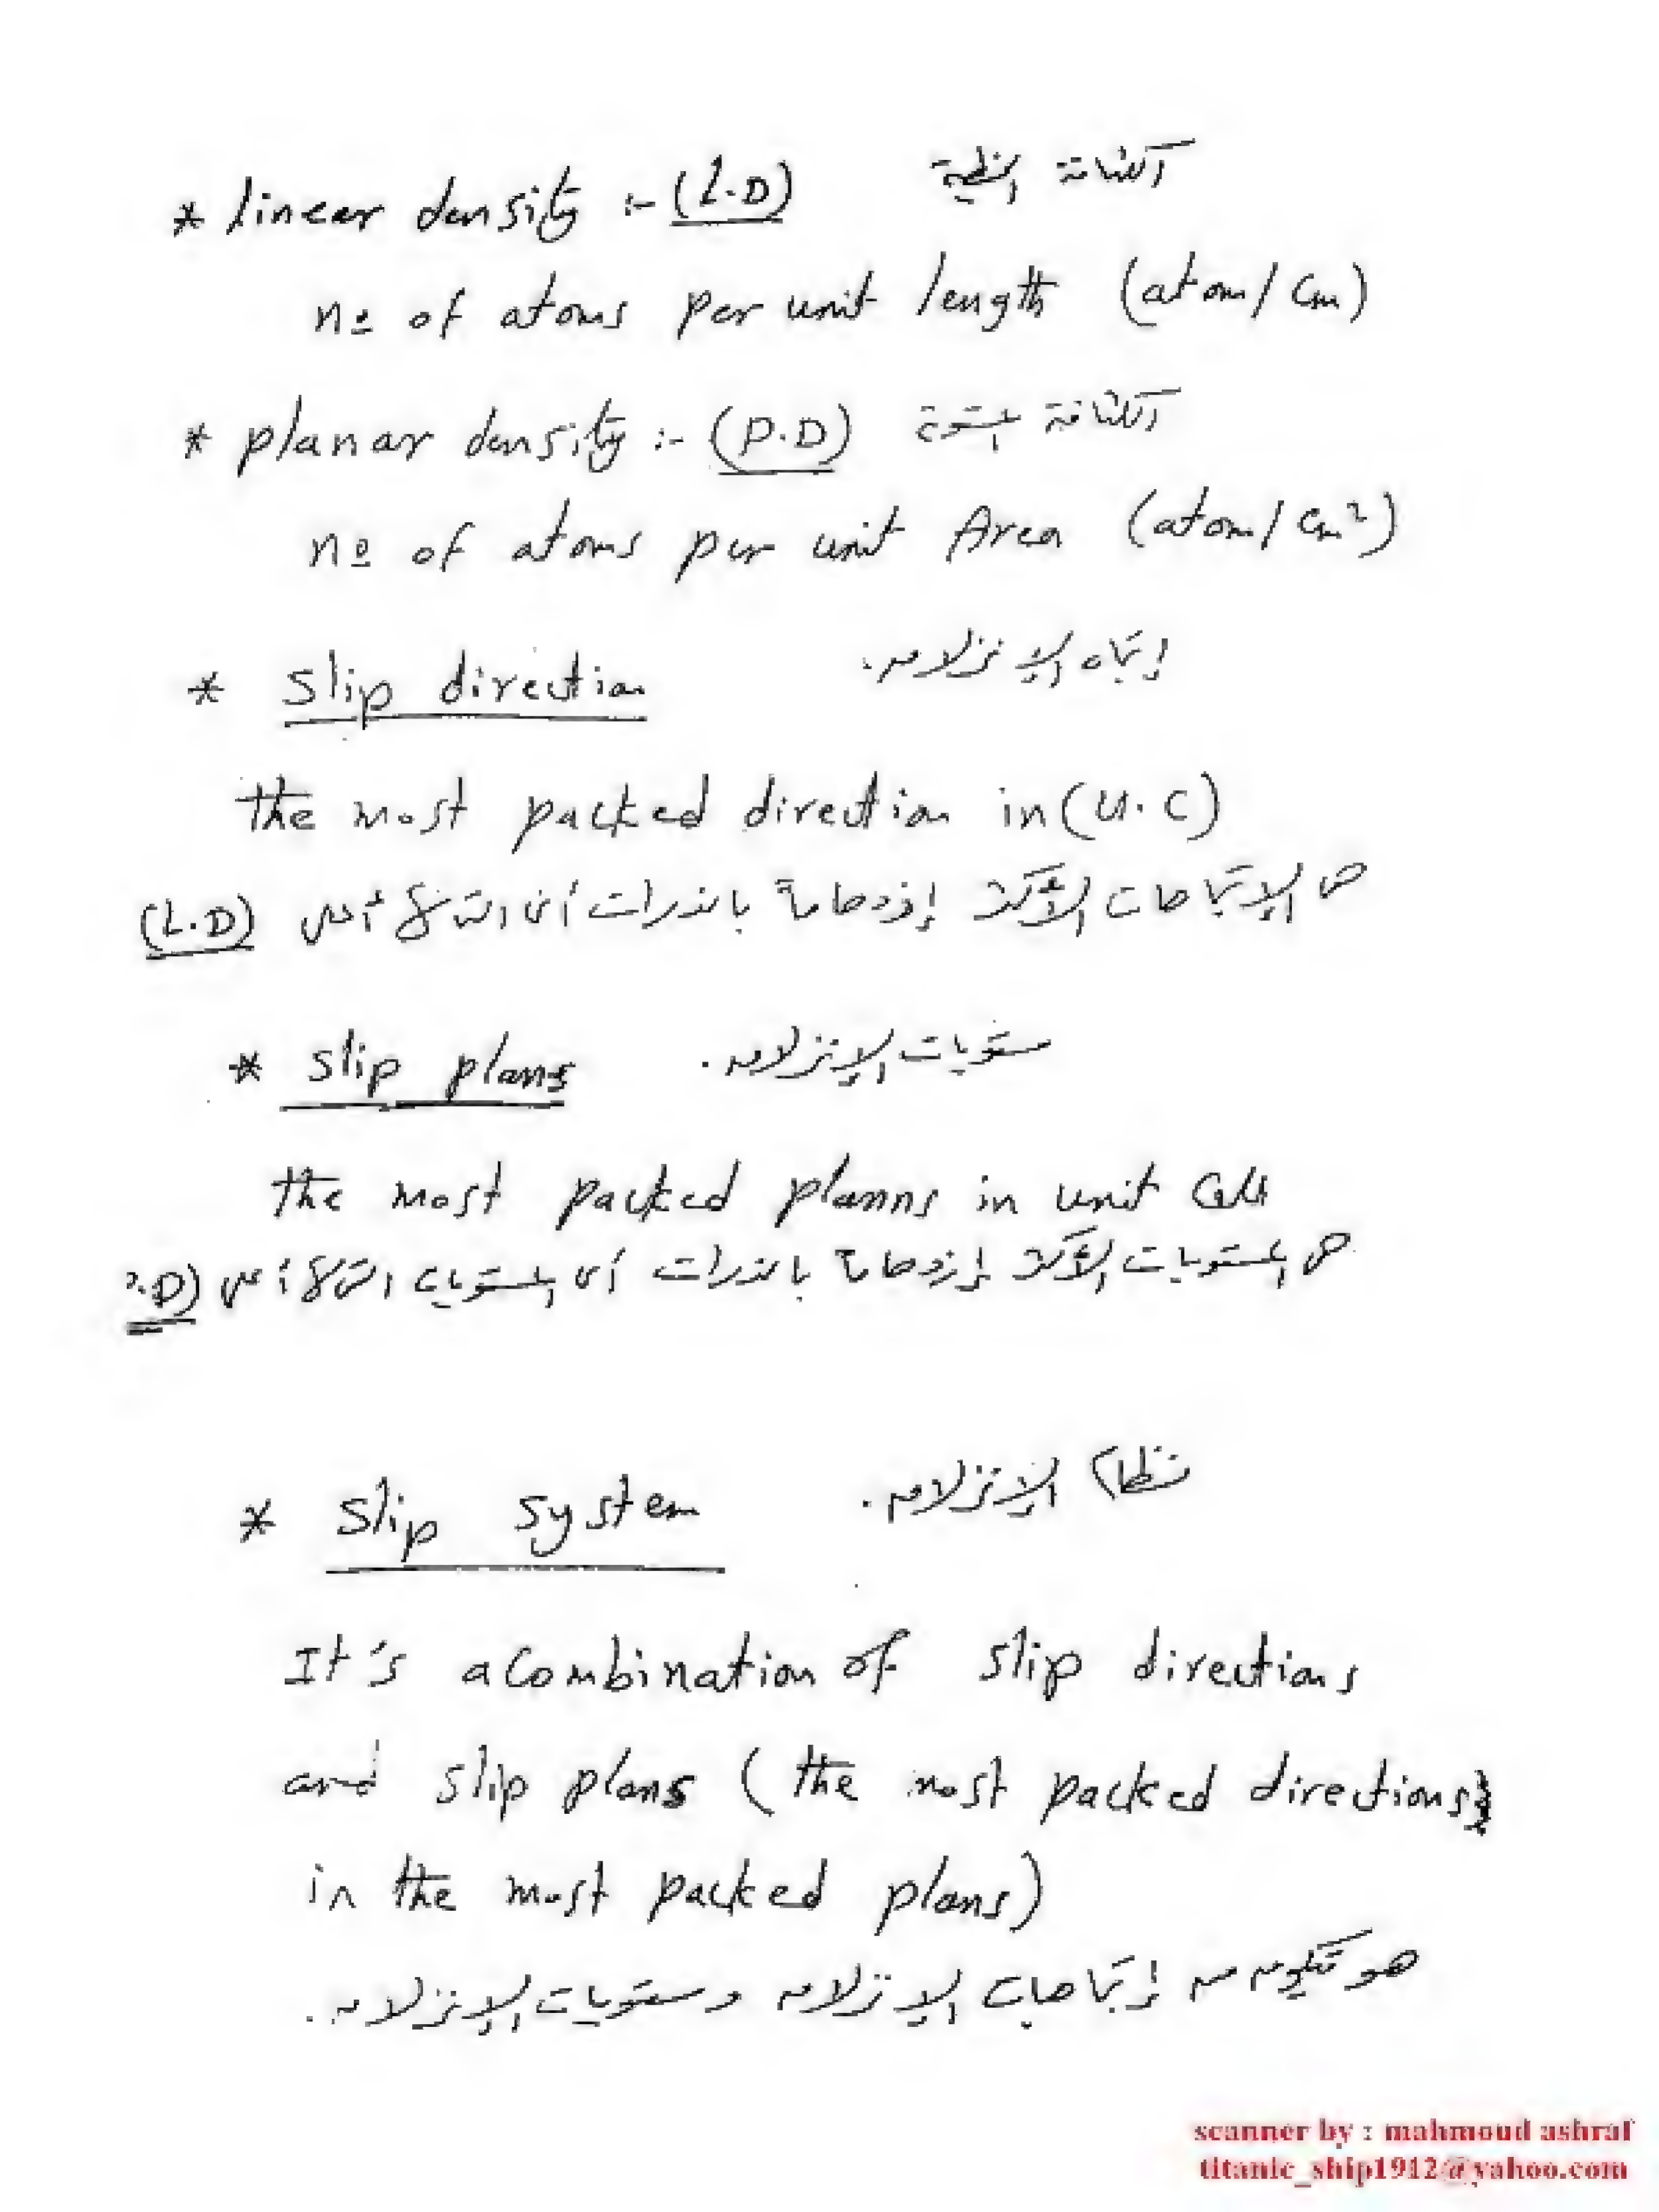 * linear density :- (L.D) الكثافة الخطية
no of atoms per unit length (atom/cm)
* planar density :- (P.D) الكثافة المستوية
no of atoms per unit Area (atom/cm²)
* Slip direction إتجاه الإنزلاق.
the most packed direction in (U.C)
هى الإتجاهات الأكثر إزدحاماً بالذرات أى التى لها أعلى (L.D)
* Slip plans مستويات الإنزلاق.
the most packed planns in unit cell
هى المستويات الأكثر إزدحاماً بالذرات أى المستويات التى لها أعلى P.D)
* Slip system نظام الإنزلاق.
It's a combination of slip directions
and slip plans (the most packed directions
in the most packed plans)
هو تكوين من إتجاهات الإنزلاق ومستويات الإنزلاق.
scanner by : mahmoud ashraf
titanic_ship1912@yahoo.com